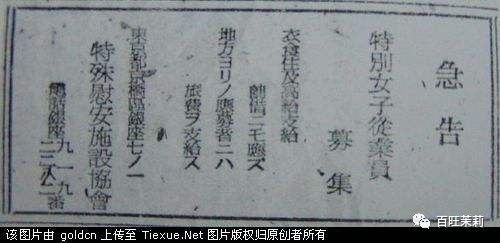 急告
特別女子從業員
募集
衣食住及高給支給
前借ニモ應ズ
地方ヨリノ應募者ニハ
旅費ヲ支給ス
東京都京橋區銀座七ノ一
特殊慰安施設協會
電話銀座
该图片由 goldcn 上传至 Tiexue.Net 图片版权归原创者所有
百旺茉莉